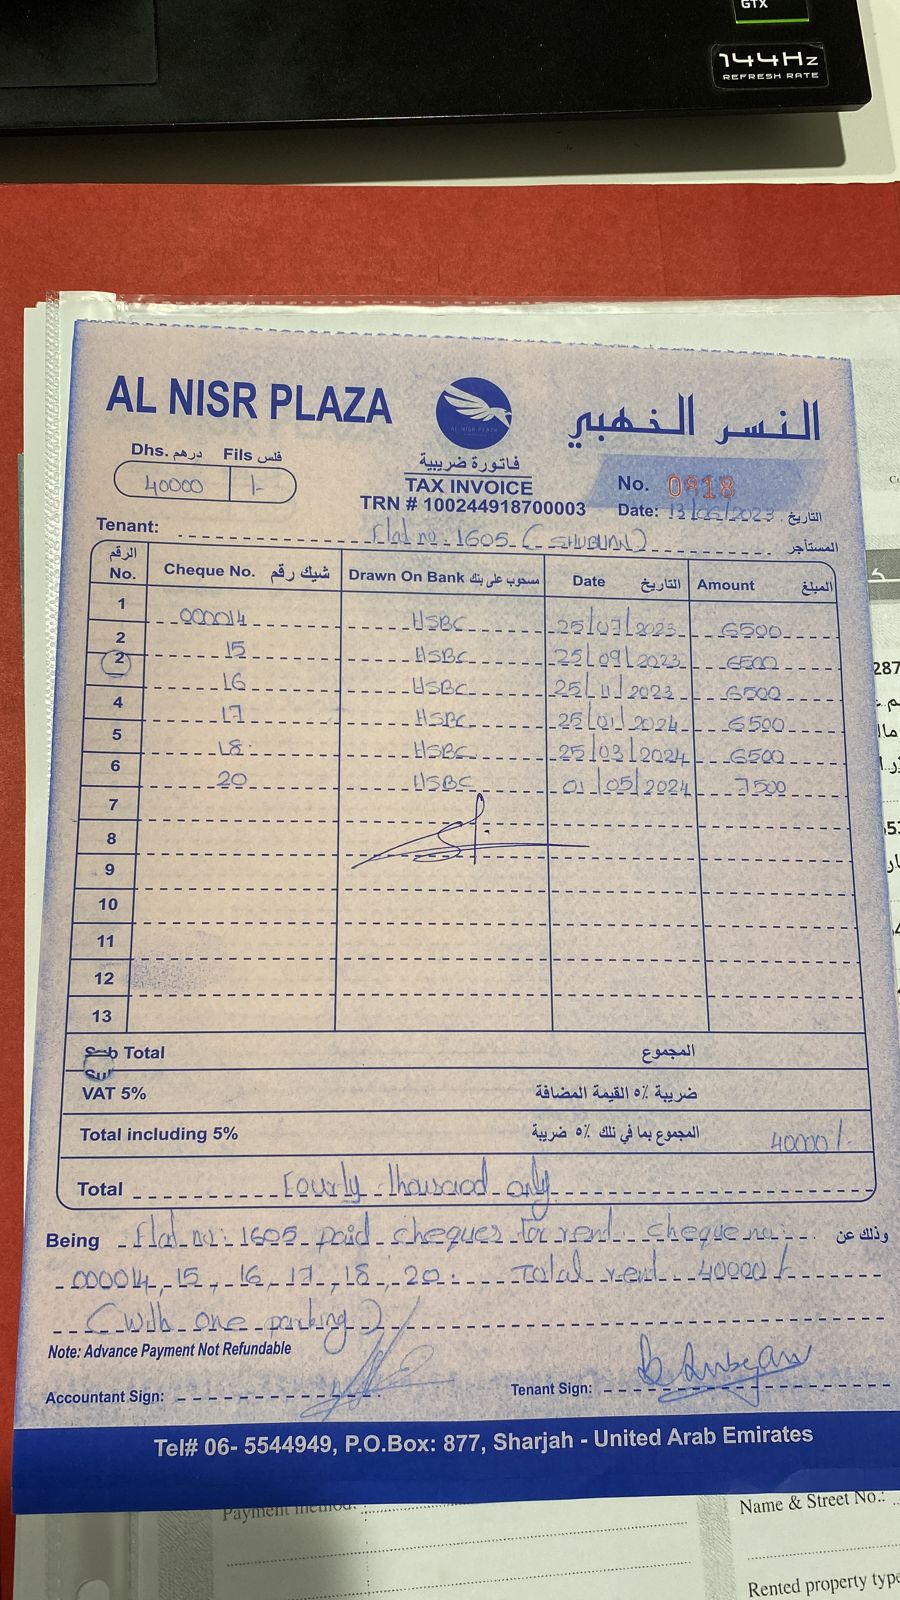 GTX
144Hz
REFRESH RATE
AL NISR PLAZA
AL-NISR PLAZA
النسر الذهبي
Dhs. درهم Fils فلس
40000 /-
فاتورة ضريبية
TAX INVOICE
TRN # 100244918700003
No. 0818
Date: 13/06/2023 التاريخ
Tenant: Flat no: 1605 (SHUBUAN) المستأجر
الرقم No. Cheque No. شيك رقم Drawn On Bank مسحوب على بنك Date التاريخ Amount المبلغ
1 000014 HSBC 25/07/2023 6500
2 15 HSBC 25/09/2023 6500
2 16 HSBC 25/11/2023 6500
4 17 HSBC 25/01/2024 6500
5 18 HSBC 25/03/2024 6500
6 20 HSBC 01/05/2024 7500
7
8
9
10
11
12
13
Sub Total المجموع
VAT 5% ضريبة ٥٪ القيمة المضافة
Total including 5% المجموع بما في ذلك ٥٪ ضريبة 40000/-
Total Fourty thousand only
Being Flat no: 1605 paid cheques for rent cheque no: وذلك عن
000014, 15, 16, 17, 18, 20. Total rent 40000/-
(with one parking)
Note: Advance Payment Not Refundable
Accountant Sign:
Tenant Sign:
Tel# 06- 5544949, P.O.Box: 877, Sharjah - United Arab Emirates
Payment method:
Name & Street No.:
Rented property type